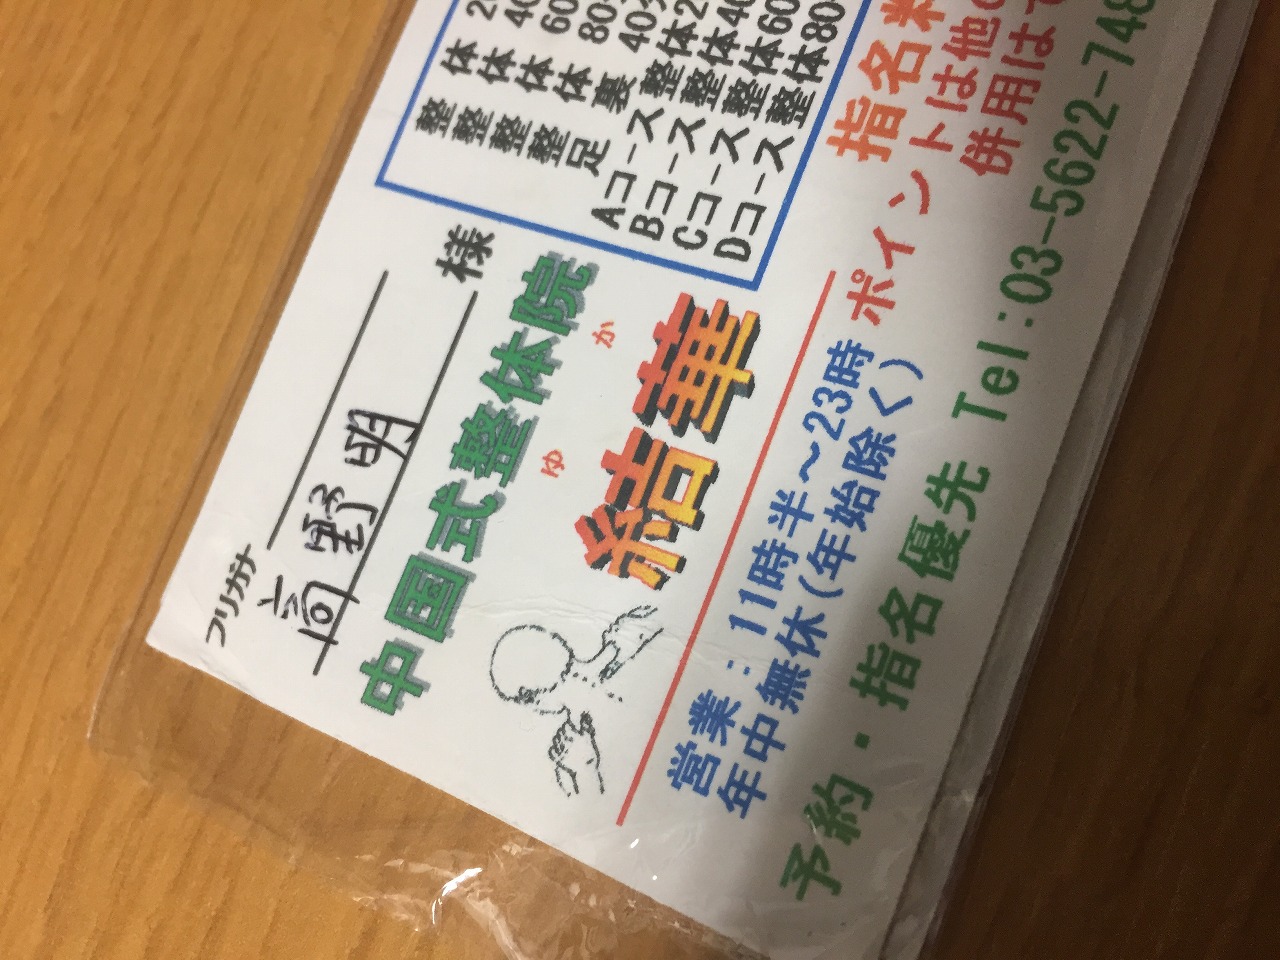 フリガナ
高野明 様
中国式整体院
ゆ か
結華
整体 2
整体 40
整体 60
整体 80
足裏 40分
Aコース 整体2
Bコース 整体40
Cコース 整体60
Dコース 整体80
営業：11時半～23時
年中無休（年始除く）
指名料
ポイントは他の
併用は
予約・指名優先 Tel：03-5622-748